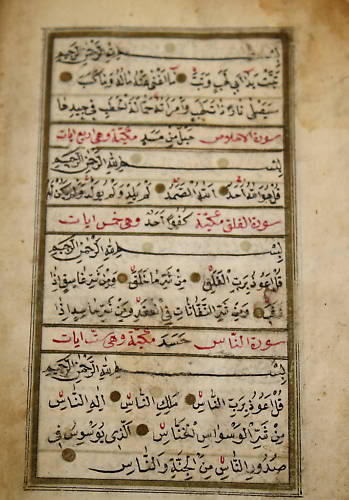 بسم الله الرحمن الرحيم
تبت يدا ابي لهب وتب ما اغنى عنه ماله وما كسب
سيصلى نارا ذات لهب وامراته حمالة الحطب في جيدها
سورة الاخلاص حبل من مسد مكية وهي اربع ايات
بسم الله الرحمن الرحيم
قل هو الله احد الله الصمد لم يلد ولم يولد ولم يكن له
سورة الفلق مكية كفوا احد وهي خمس ايات
بسم الله الرحمن الرحيم
قل اعوذ برب الفلق من شر ما خلق ومن شر غاسق اذا
وقب ومن شر النفاثات في العقد ومن شر حاسد اذا
سورة الناس حسد مكية وهي ست ايات
بسم الله الرحمن الرحيم
قل اعوذ برب الناس ملك الناس اله الناس
من شر الوسواس الخناس الذي يوسوس في
صدور الناس من الجنة والناس